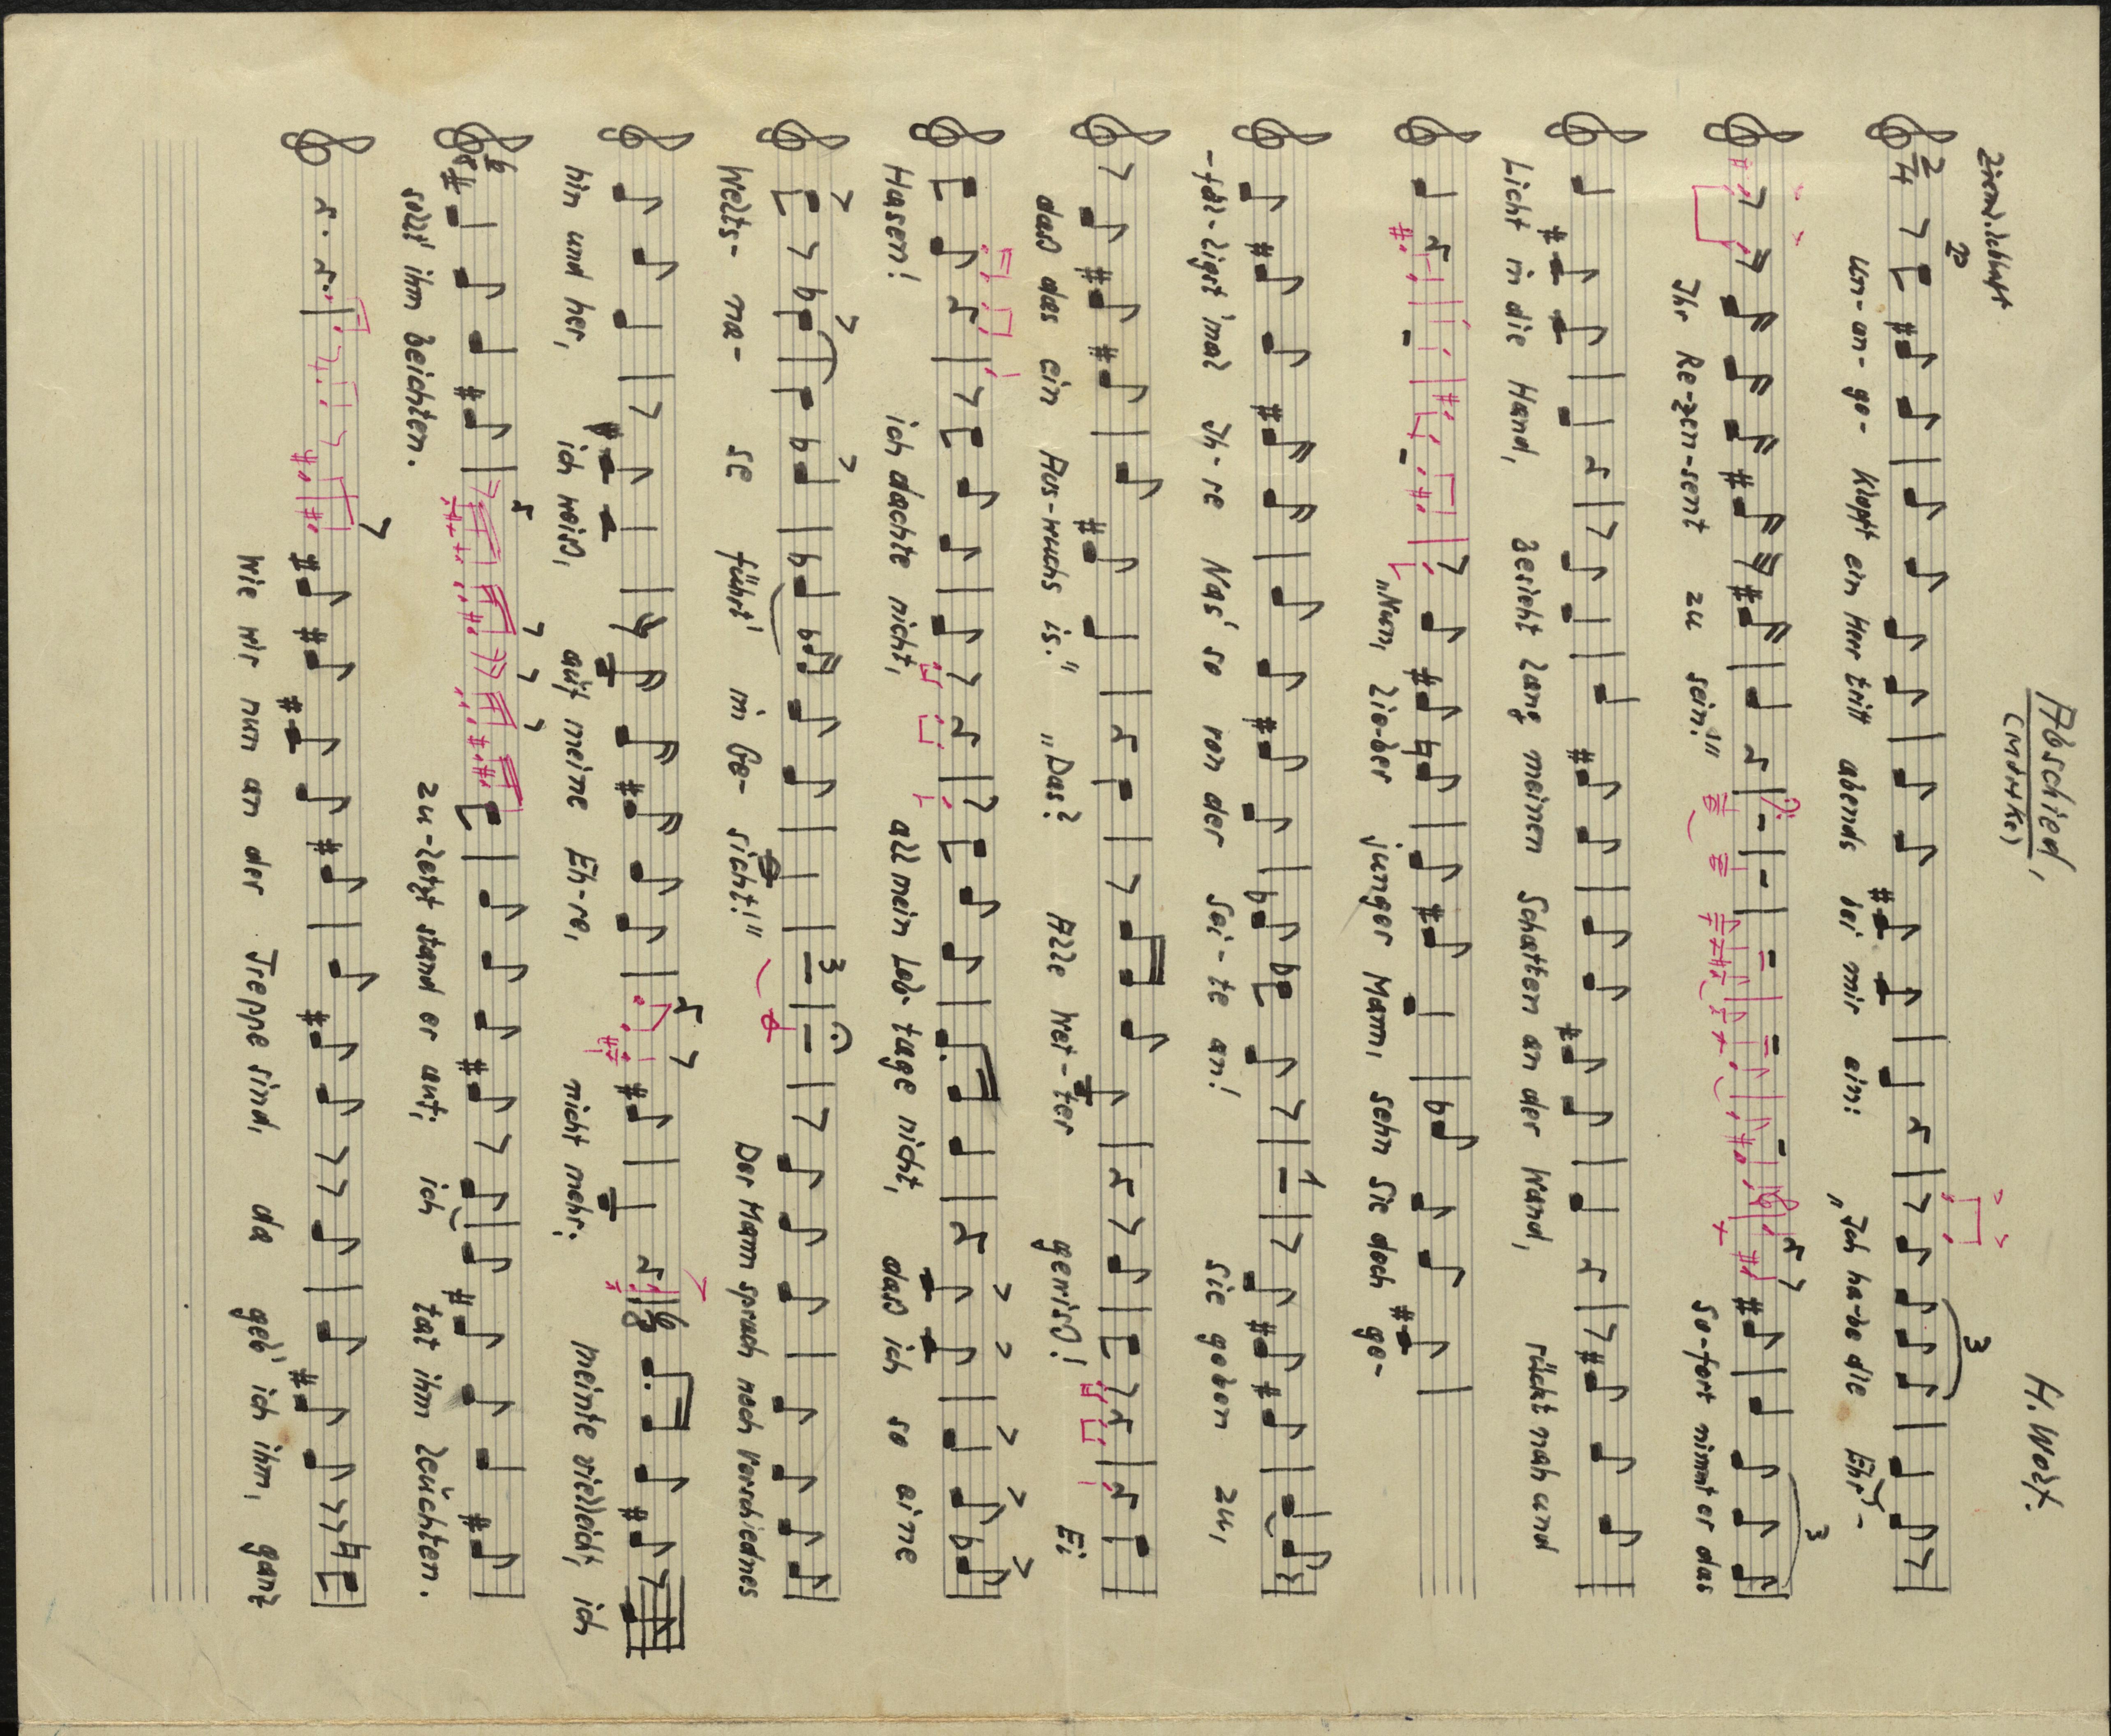 Abschied,
(Mörike)
H. Wolf.
Ziemi. lebhaft
2/4
p
3
Un-an-ge- klopft ein Herr tritt abends bei mir ein: „Ich ha-be die Ehr'-
3
Ihr Re-zen-sent zu sein!" So-fort nimmt er das
Licht in die Hand, besieht lang meinen Schatten an der Wand, rückt nah und
„Nun, lie-ber junger Mann, sehn Sie doch ge-
1
-fäl-ligst 'mal Ih-re Nas' so von der Sei-te an! Sie geben zu,
daß das ein Aus-wuchs is." „Das? Alle Wet-ter gewiß! Ei
Hasen! ich dachte nicht, all mein Leb- tage nicht, daß ich so eine
3
Welts- na- se führt' im Ge- sicht!!" Der Mann sprach noch Verschiednes
hin und her, ich weiß, auf meine Eh-re, nicht mehr; meinte vielleicht, ich
6/8
sollt' ihm beichten. zu-letzt stand er auf; ich tat ihm leuchten.
Wie wir nun an der Treppe sind, da geb' ich ihm, ganz